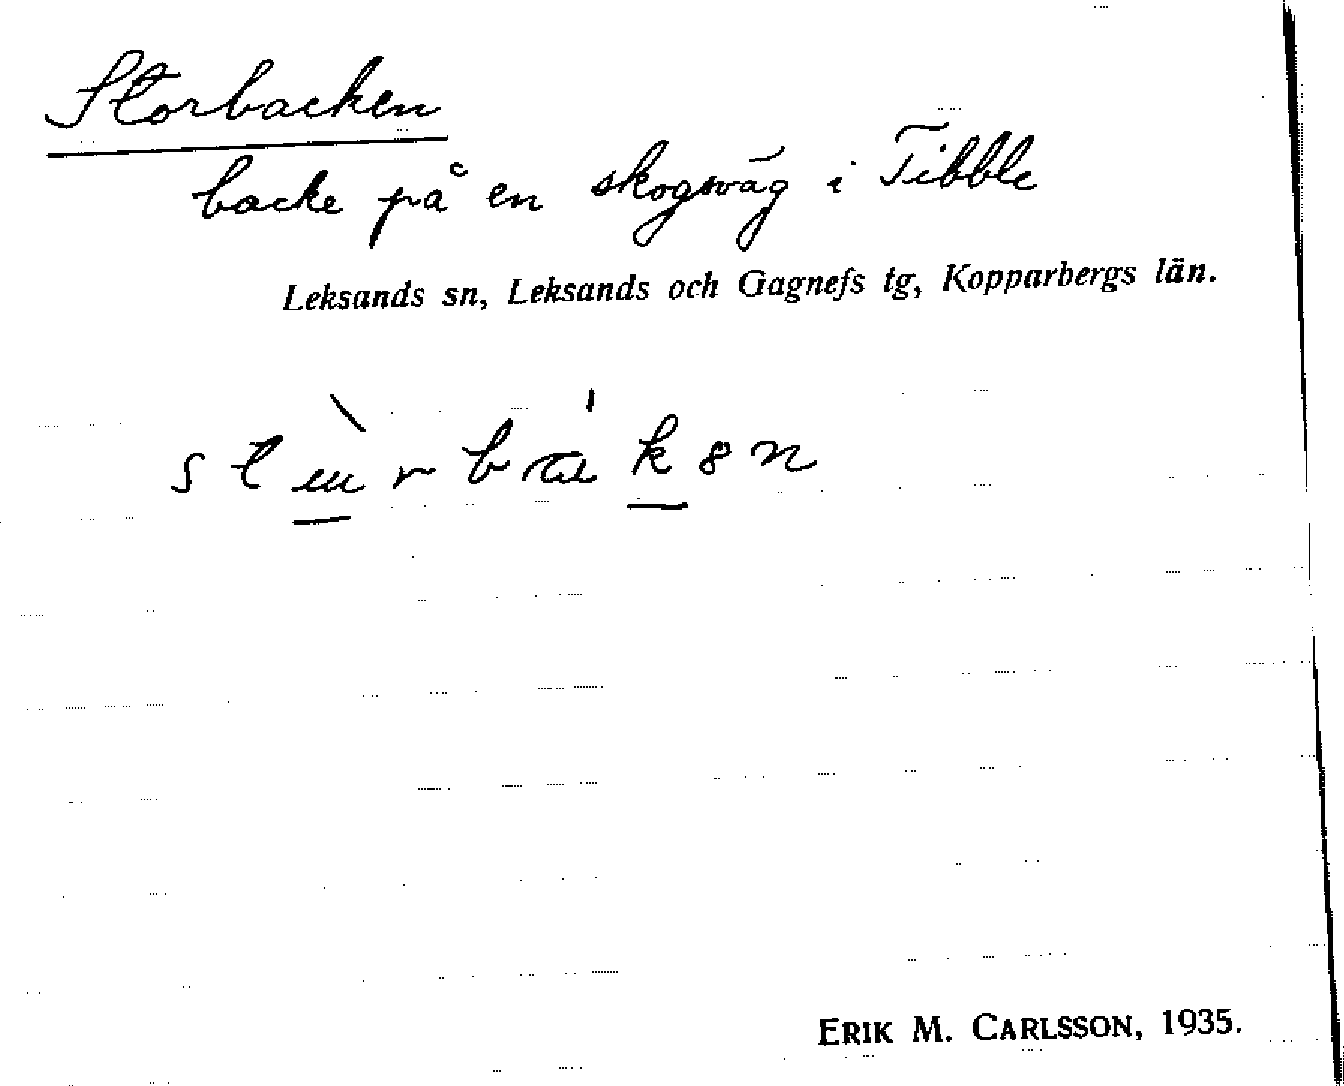 Storbacken
backe på en skogsväg i Tibble
Leksands sn, Leksands och Gagnefs tg, Kopparbergs län.
ERIK M. CARLSSON, 1935.